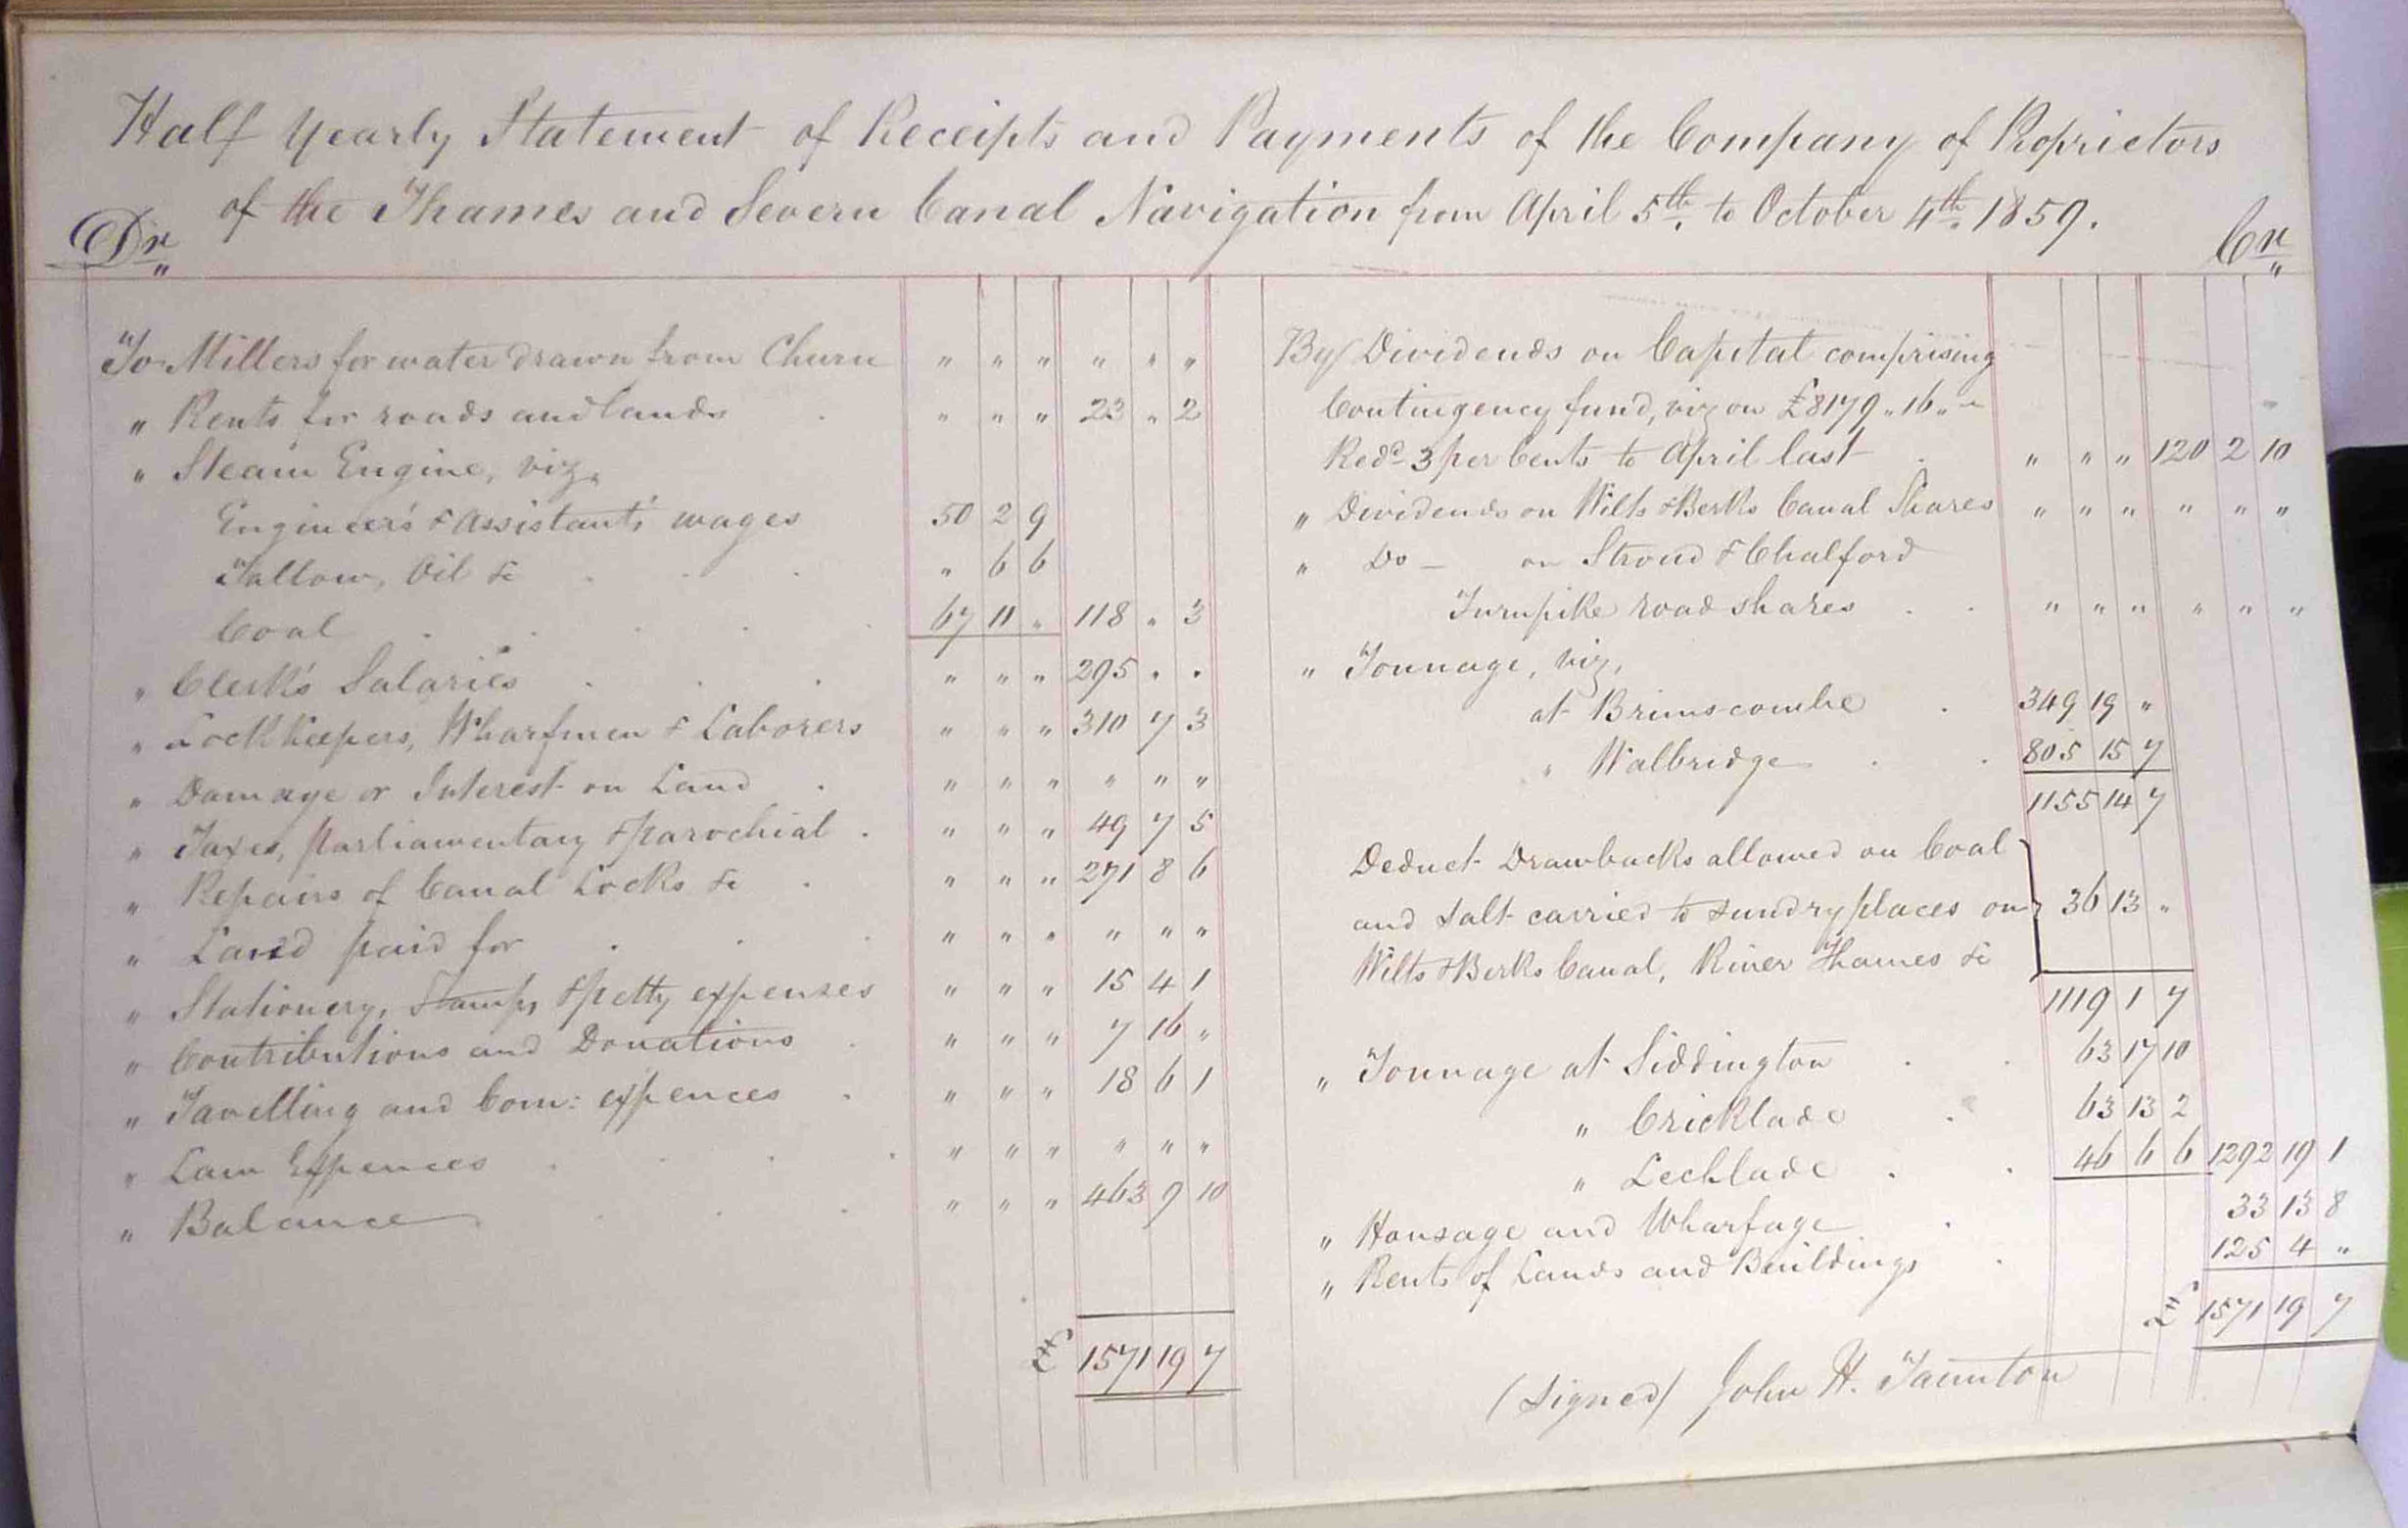 Half Yearly Statement of Receipts and Payments of the Company of Proprietors
of the Thames and Severn Canal Navigation from April 5th. to October 4th. 1859.
Dr
Cr
To Millers for water drawn from Churn " " " " " "
" Rents for roads and lands " " " 23 " 2
" Steam Engine, viz.
Engineer's & Assistant's wages 50 2 9
Tallow, Oil &c " 6 6
Coal 67 11 " 118 " 3
" Clerk's Salaries " " " 295 " "
" Lockkeepers, Wharfmen & Laborers " " " 310 7 3
" Damage or Interest on Land " " " " " "
" Taxes, Parliamentary & Parochial " " " 49 7 5
" Repairs of Canal Locks &c " " " 271 8 6
" Land paid for " " " " " "
" Stationery, Stamps & petty expenses " " " 15 4 1
" Contributions and Donations " " " 7 16 "
" Tavelling and Com: expences " " " 18 6 1
" Law Expences " " " " " "
" Balance " " " 463 9 10
£ 1571 19 7
By Dividends on Capital comprising
Contingency fund, viz on £8179 " 16 " -
Redd 3 per Cents to April last " " " 120 2 10
" Dividends on Wilts & Berks Canal Shares " " " " " "
" Do - on Stroud & Chalford
Turnpike road shares " " " " " "
" Tonnage, viz,
at Brimscombe 349 19 "
" Walbridge 805 15 7
1155 14 7
Deduct Drawbacks allowed on Coal
and Salt carried to sundry places on 36 13 "
Wilts & Berks Canal, River Thames &c
1119 1 7
" Tonnage at Siddington 63 17 10
" Cricklade 63 13 2
" Lechlade 46 6 6 1292 19 1
" Housage and Wharfage 33 13 8
" Rents of Lands and Buildings 125 4 "
£ 1571 19 7
(Signed) John H. Taunton